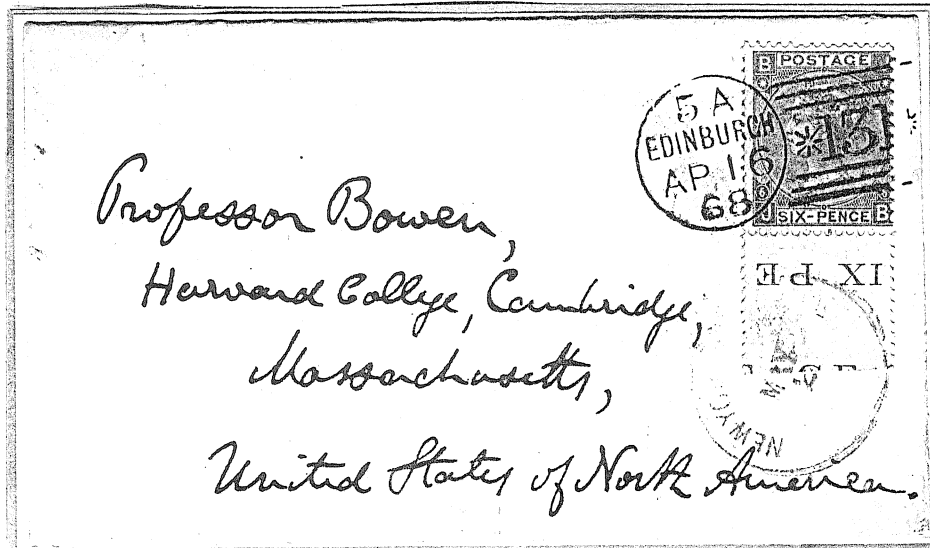 B POSTAGE
5 A
EDINBURGH
AP 16
68
131
J SIX-PENCE B
IX PE
Professor Bowen,
Harvard College, Cambridge,
Massachusetts,
United States of North America.